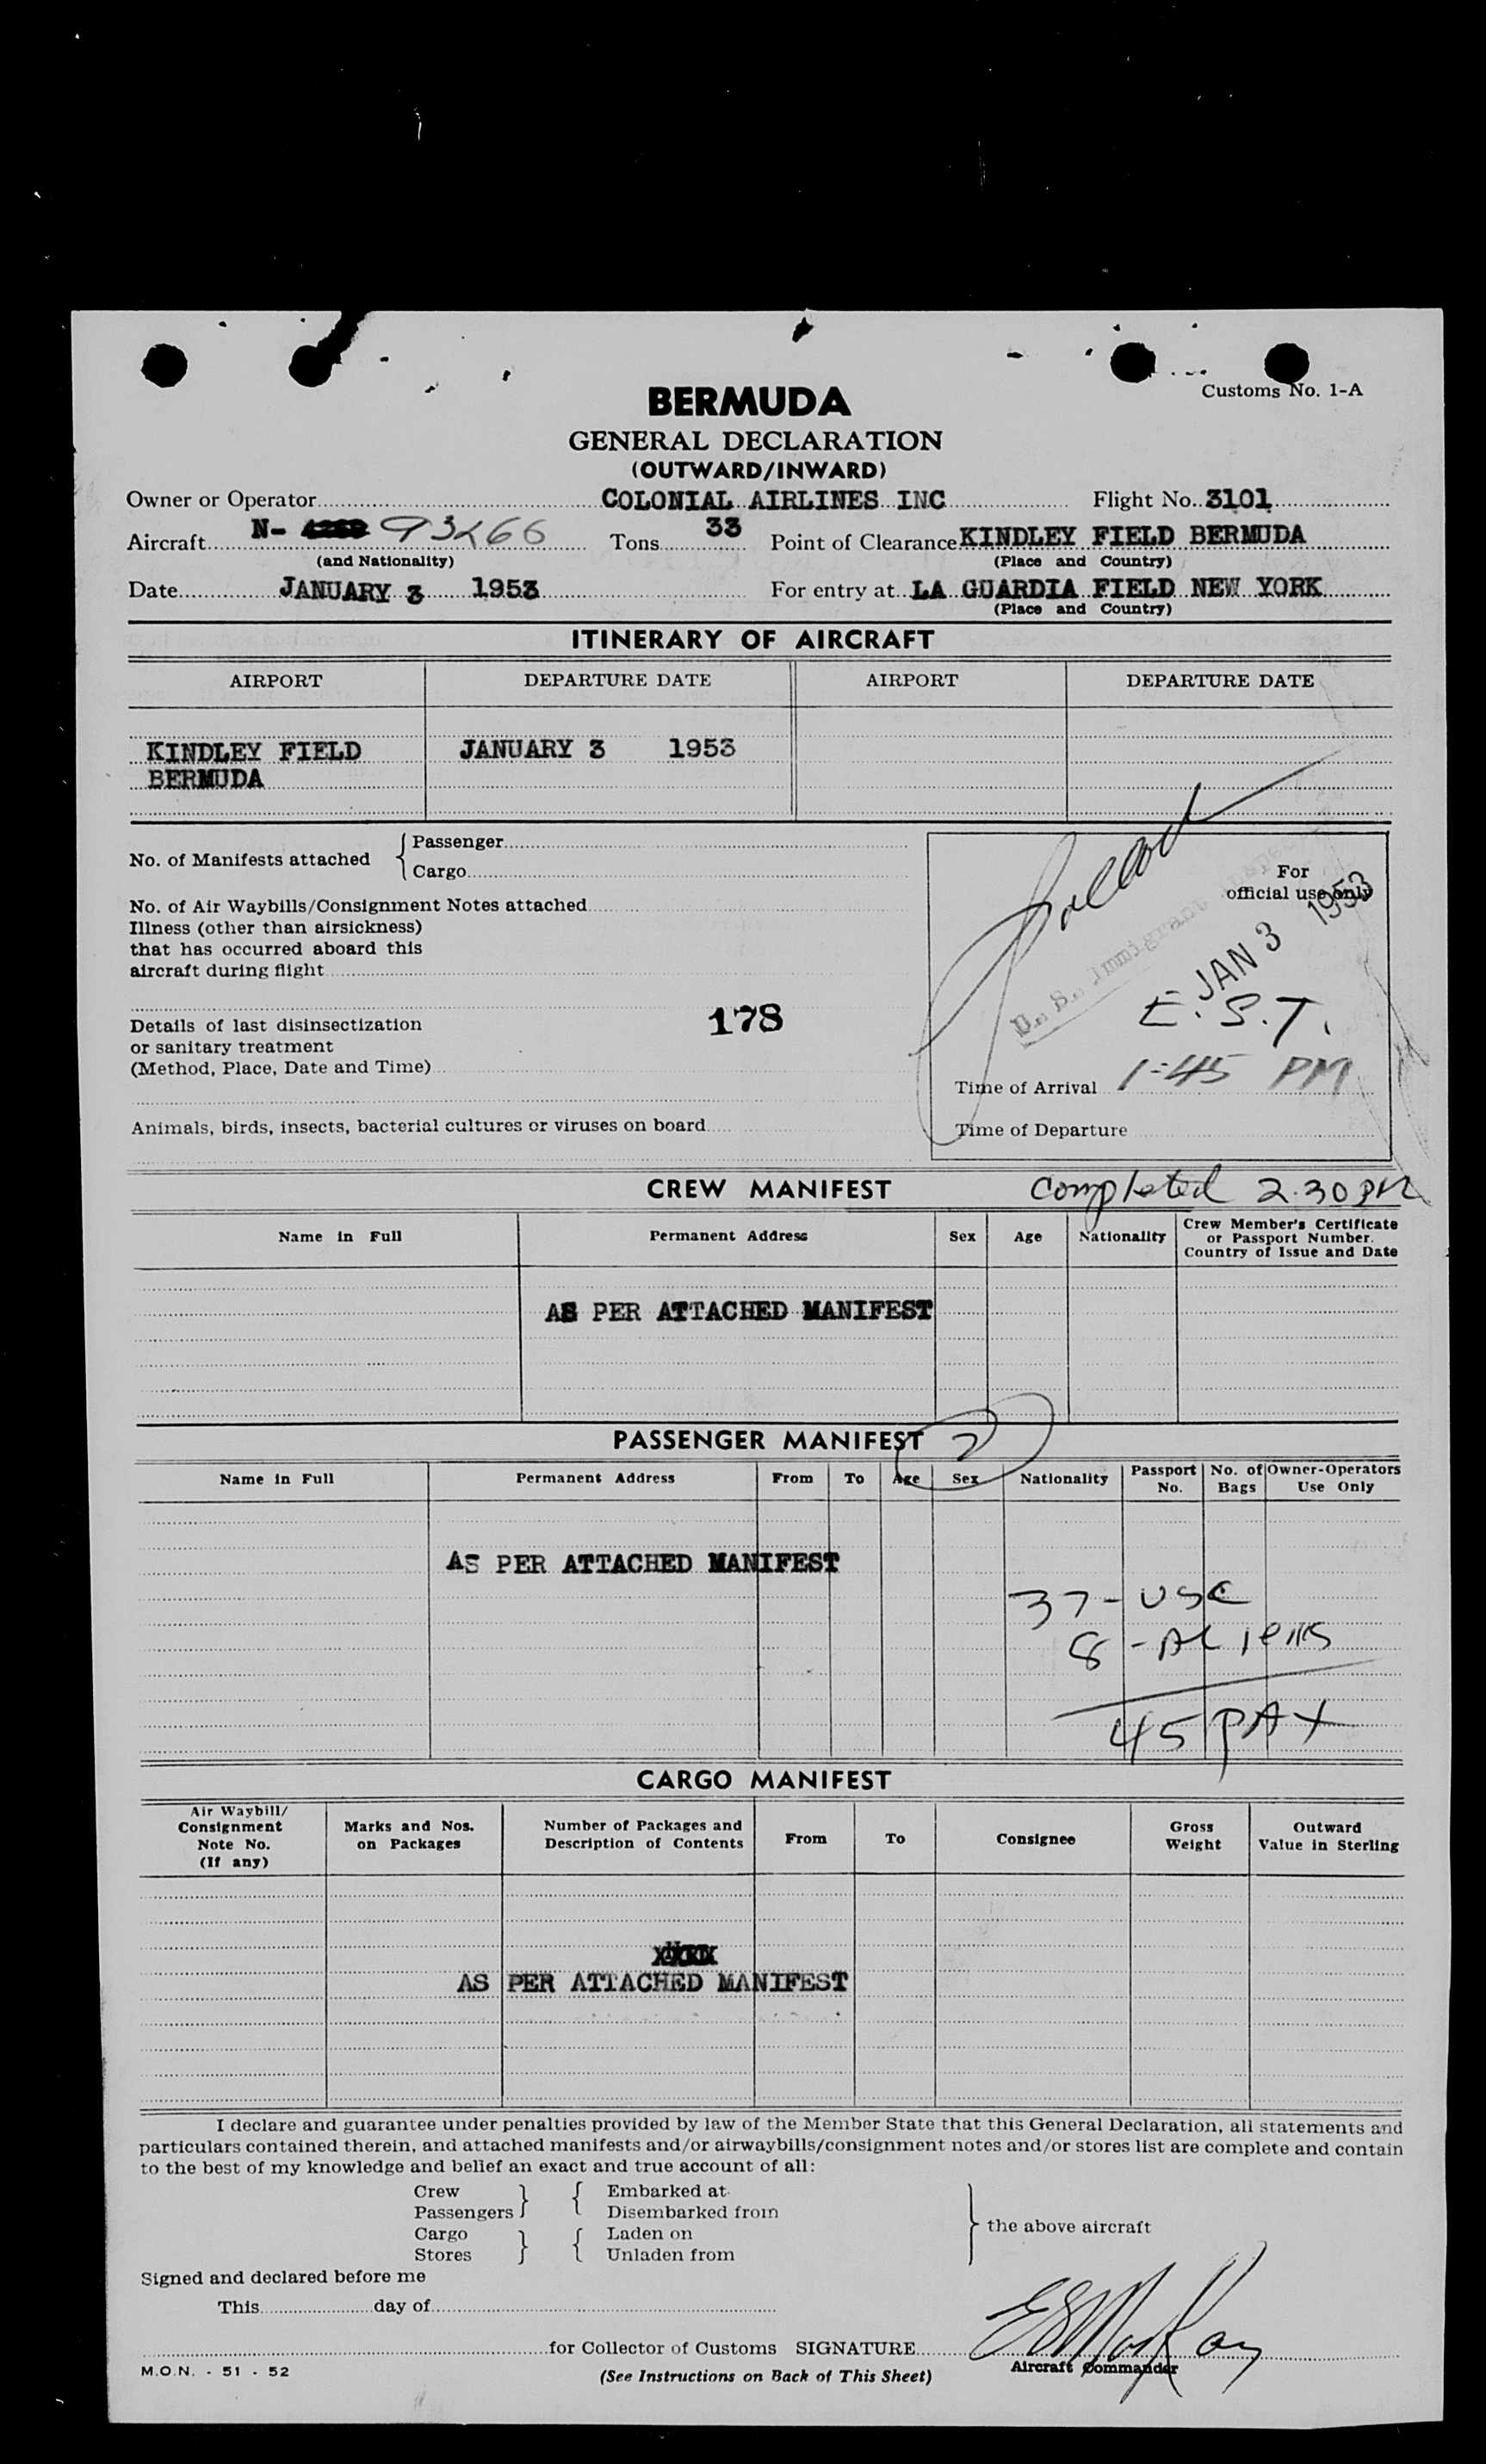 Customs No. 1-A
BERMUDA
GENERAL DECLARATION
(OUTWARD/INWARD)
Owner or Operator COLONIAL AIRLINES INC Flight No. 3101
Aircraft N- 93266 Tons 33 Point of Clearance KINDLEY FIELD BERMUDA
(and Nationality) (Place and Country)
Date JANUARY 3 1953 For entry at LA GUARDIA FIELD NEW YORK
(Place and Country)
ITINERARY OF AIRCRAFT
AIRPORT DEPARTURE DATE AIRPORT DEPARTURE DATE
KINDLEY FIELD JANUARY 3 1953
BERMUDA
No. of Manifests attached { Passenger
Cargo
No. of Air Waybills/Consignment Notes attached
Illness (other than airsickness)
that has occurred aboard this
aircraft during flight
Details of last disinsectization
or sanitary treatment
(Method, Place, Date and Time)
178
Animals, birds, insects, bacterial cultures or viruses on board
For
official use only
U. S. Immigrant
JAN 3 1953
E.S.T.
Time of Arrival 1:45 PM
Time of Departure
CREW MANIFEST Completed 2.30 PM
Name in Full Permanent Address Sex Age Nationality Crew Member's Certificate
or Passport Number.
Country of Issue and Date
AS PER ATTACHED MANIFEST
PASSENGER MANIFEST 2
Name in Full Permanent Address From To Age Sex Nationality Passport No. No. of Bags Owner-Operators Use Only
AS PER ATTACHED MANIFEST
37 - USC
8 - Aliens
45 PAX
CARGO MANIFEST
Air Waybill/
Consignment
Note No.
(If any)
Marks and Nos.
on Packages
Number of Packages and
Description of Contents
From To Consignee
Gross
Weight
Outward
Value in Sterling
AS PER ATTACHED MANIFEST
I declare and guarantee under penalties provided by law of the Member State that this General Declaration, all statements and
particulars contained therein, and attached manifests and/or airwaybills/consignment notes and/or stores list are complete and contain
to the best of my knowledge and belief an exact and true account of all:
Crew } { Embarked at
Passengers Disembarked from
Cargo } { Laden on } the above aircraft
Stores Unladen from
Signed and declared before me
This day of
for Collector of Customs SIGNATURE
Aircraft Commander
M.O.N. - 51 - 52
(See Instructions on Back of This Sheet)